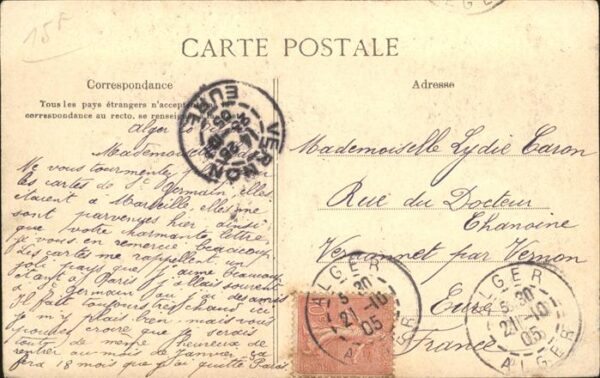 15F
CARTE POSTALE
Correspondance
Tous les pays étrangers n'acceptent
correspondance au recto, se renseigner
Alger
Mademoiselle
Ne vous tourmentez pas
les cartes de St Germain elles
étaient à Marseille elles me
sont parvenues hier ainsi
que votre charmante lettre
je vous en remercie beaucoup
Les cartes me rappellent un
pays que j'aime beaucoup
étant à Paris j'allais souvent
à St Germain ou j'ai des amis
Il fait toujours très chaud ici
je m'y plais bien mais vous
pouvez croire que je serais
tout de même heureux de
rentrer au mois de Janvier, ça
fera 18 mois que j'ai quitté Paris
Adresse
Mademoiselle Lydie Caron
Rue du Docteur
Chanoine
Vernonnet par Vernon
Eure
France
VERNON
EURE
ALGER
5 30
21-10
05
ALGER
ALGER
5 30
21-10
05
ALGER